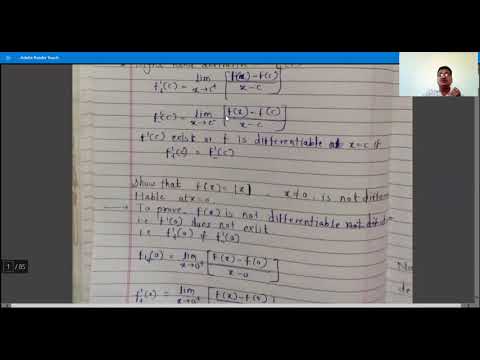 Adobe Reader Touch
Right hand derivative
f'₊(c) = lim x→c⁺ [f(x) − f(c) / x − c]
f'₋(c) = lim x→c⁻ [f(x) − f(c) / x − c]
f'(c) exist or f is differentiable at x=c if
f'₊(c) = f'₋(c)
Show that f(x) = |x| , x≠0, is not differen
tiable at x=0.
→ To prove f(x) is not differentiable
i.e f'(0) does not exist
i.e f'₊(0) ≠ f'₋(0)
f'₊(0) = lim x→0⁺ [f(x) − f(0) / x − 0]
f'₊(0) = lim x→0⁺ [f(x) − f(0)
1 / 85